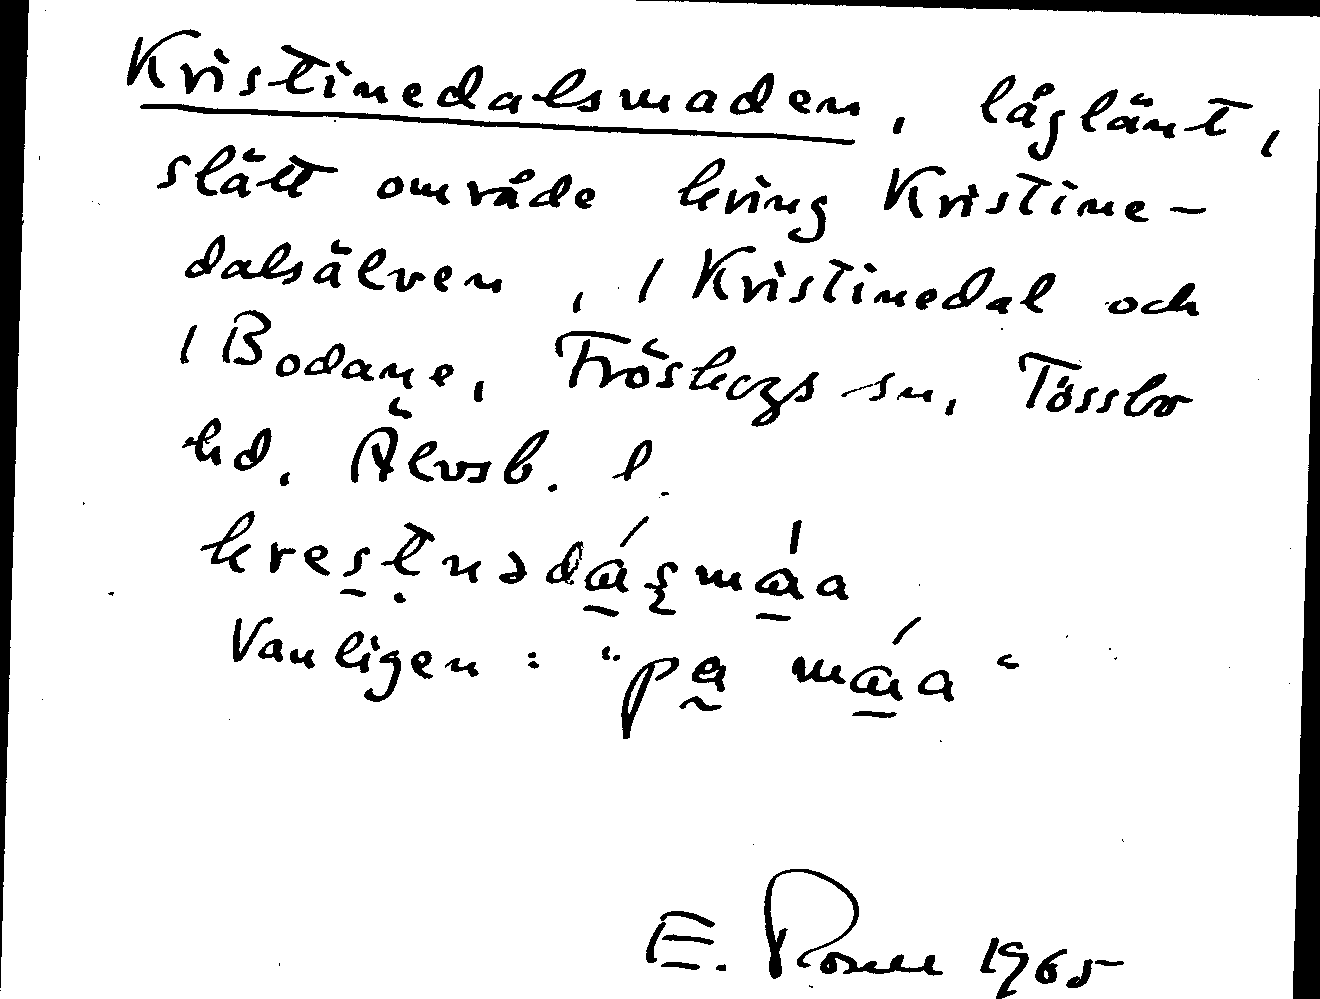 Kristinedalsmaden, låglänt,
slätt område kring Kristine-
dalsälven, i Kristinedal och
i Bodane, Fröskogs sn, Tössbo
hd, Älvsb. l.
Vanligen:
E. 1965